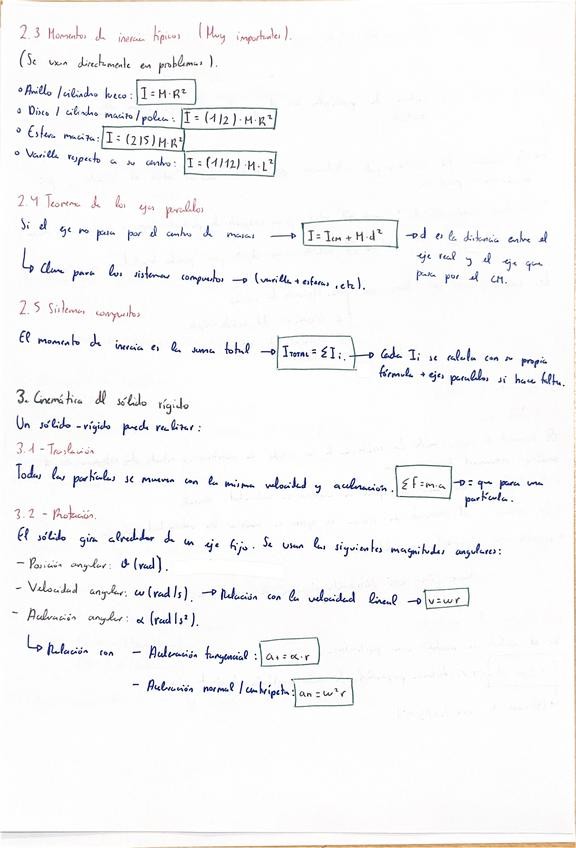 2.3 Momentos de inercia típicos (Muy importantes).
(Se usan directamente en problemas).
o Anillo / cilindro hueco: I = M·R²
o Disco / cilindro macizo / polea: I = (1/2)·M·R²
o Esfera maciza: I = (2/5) M·R²
o Varilla respecto a su centro: I = (1/12)·M·L²
2.4 Teorema de los ejes paralelos
Si el eje no pasa por el centro de masas → I = I_CM + M·d² → d es la distancia entre el
eje real y el eje que
pasa por el CM.
↳ Clave para los sistemas compuestos → (varilla + esferas, etc).
2.5 Sistemas compuestos
El momento de inercia es la suma total → I_TOTAL = ΣI_i. → Cada I_i se calcula con su propia
fórmula + ejes paralelos si hace falta.
3. Cinemática del sólido rígido
Un sólido-rígido puede realizar:
3.1 - Traslación
Todas las partículas se mueven con la misma velocidad y aceleración. Σf = m·a → = que para una
partícula.
3.2 - Rotación.
El sólido gira alrededor de un eje fijo. Se usan las siguientes magnitudes angulares:
- Posición angular: θ (rad).
- Velocidad angular: ω (rad/s). → Relación con la velocidad lineal → v = ωr
- Aceleración angular: α (rad/s²).
↳ Relación con - Aceleración tangencial: a_t = α·r
- Aceleración normal / centrípeta: a_n = ω²r